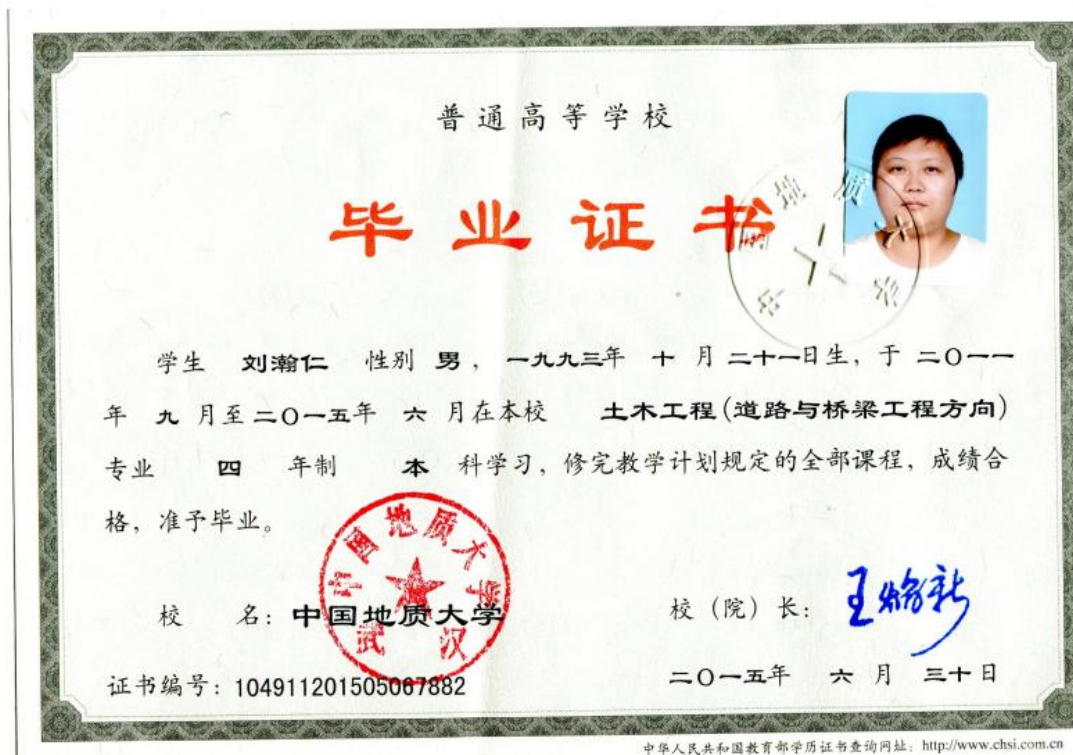 普通高等学校
毕业证书
学生 刘瀚仁 性别 男，一九九三年 十 月 二十一日生，于 二〇一一
年 九 月至二〇一五年 六 月在本校 土木工程(道路与桥梁工程方向)
专业 四 年制 本 科学习，修完教学计划规定的全部课程，成绩合
格，准予毕业。
中国地质大学
武汉
校 名：中国地质大学
校（院）长：王焰新
证书编号：104911201505067882
二〇一五年 六 月 三十日
中华人民共和国教育部学历证书查询网址：http://www.chsi.com.cn